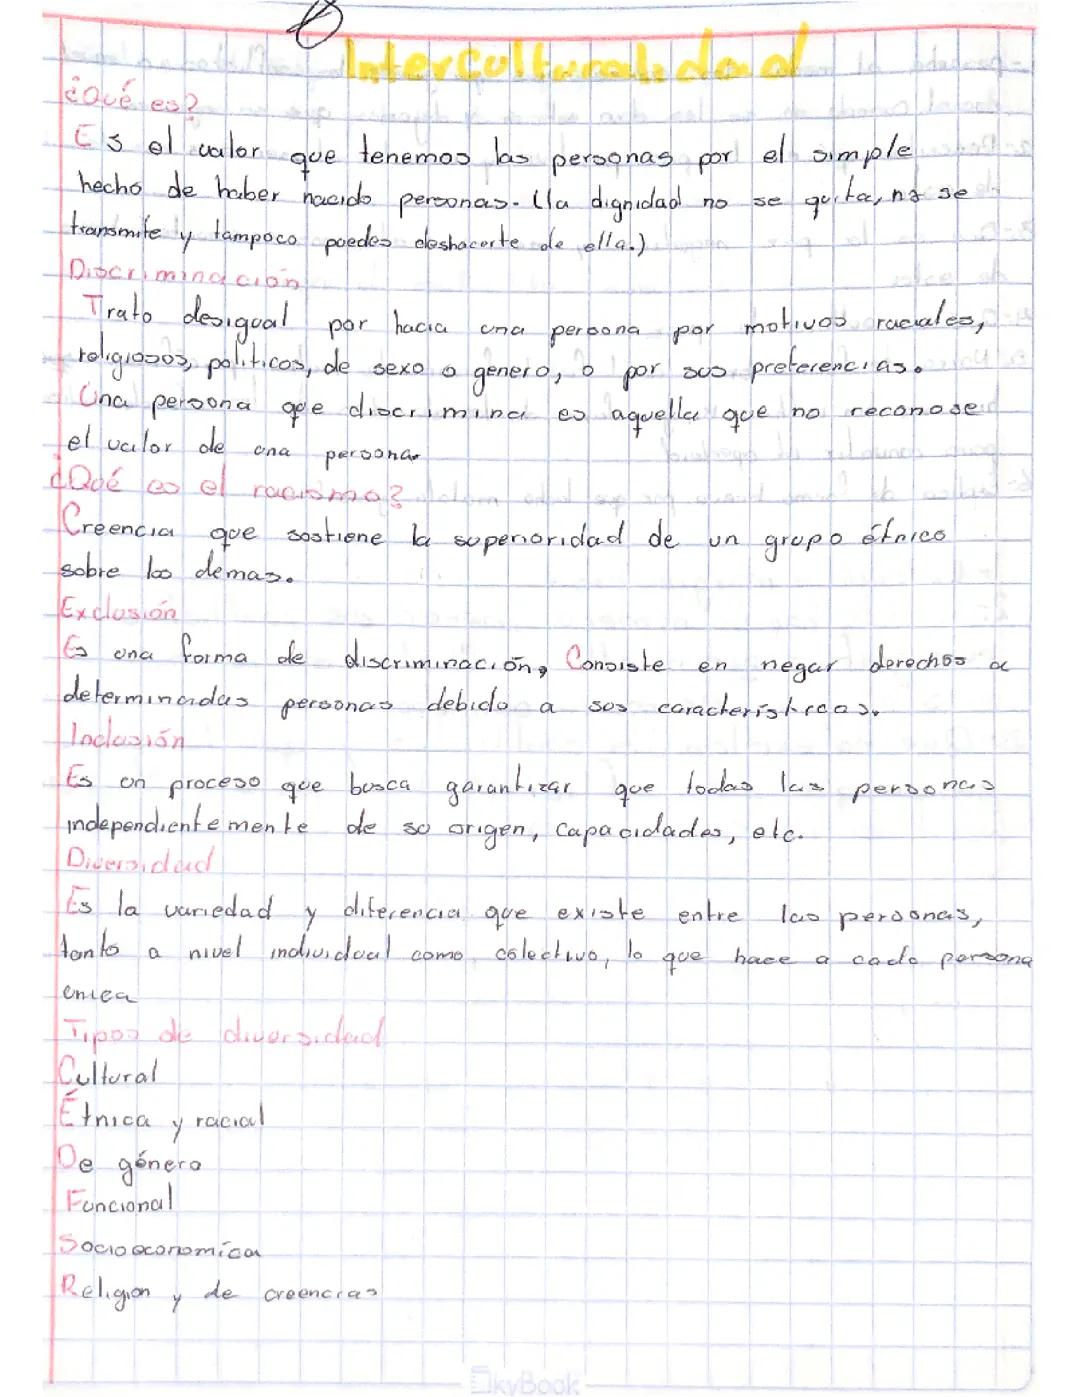 Interculturalidad
¿Qué es?
Es el valor que tenemos las personas por el simple
hecho de haber nacido personas. (la dignidad no se quita, no se
transmite y tampoco puedes deshacerte de ella.)
Discriminación
Trato desigual por hacia una persona por motivos raciales,
religiosos, políticos, de sexo o genero, o por sus preferencias.
Una persona que discrimina es aquella que no reconose
el valor de una persona.
¿Qué es el racismo?
Creencia que sostiene la superioridad de un grupo étnico
sobre los demas.
Exclusión
Es una forma de discriminación, Consiste en negar derechos a
determinadas personas debido a sus características.
Inclusión
Es un proceso que busca garantizar que todas las personas
independientemente de su origen, capacidades, etc.
Diversidad
Es la variedad y diferencia que existe entre las personas,
tanto a nivel individual como colectivo, lo que hace a cada persona
unica
Tipos de diversidad
Cultural
Étnica y racial
De género
Funcional
Socioeconomica
Religion y de creencias
SkyBook